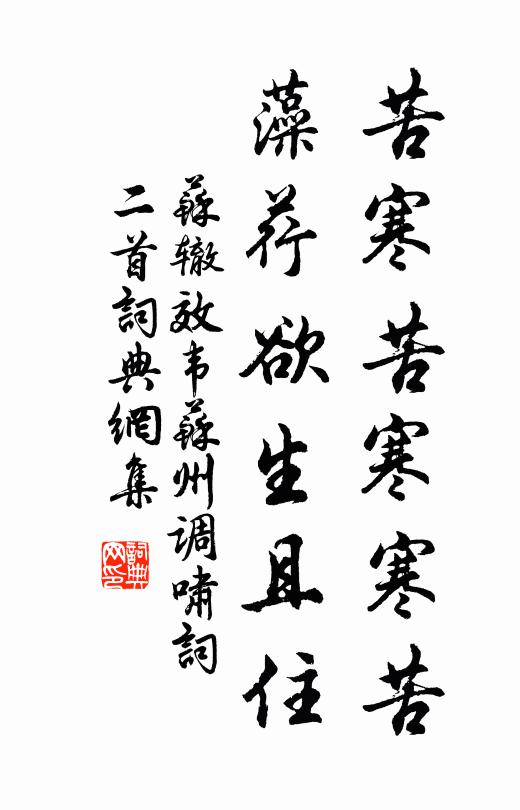 苦寒苦寒寒苦
藻荇欲生且住
蘇辙效韦蘇州调嘯詞
二首詞典網集
詞典
网印